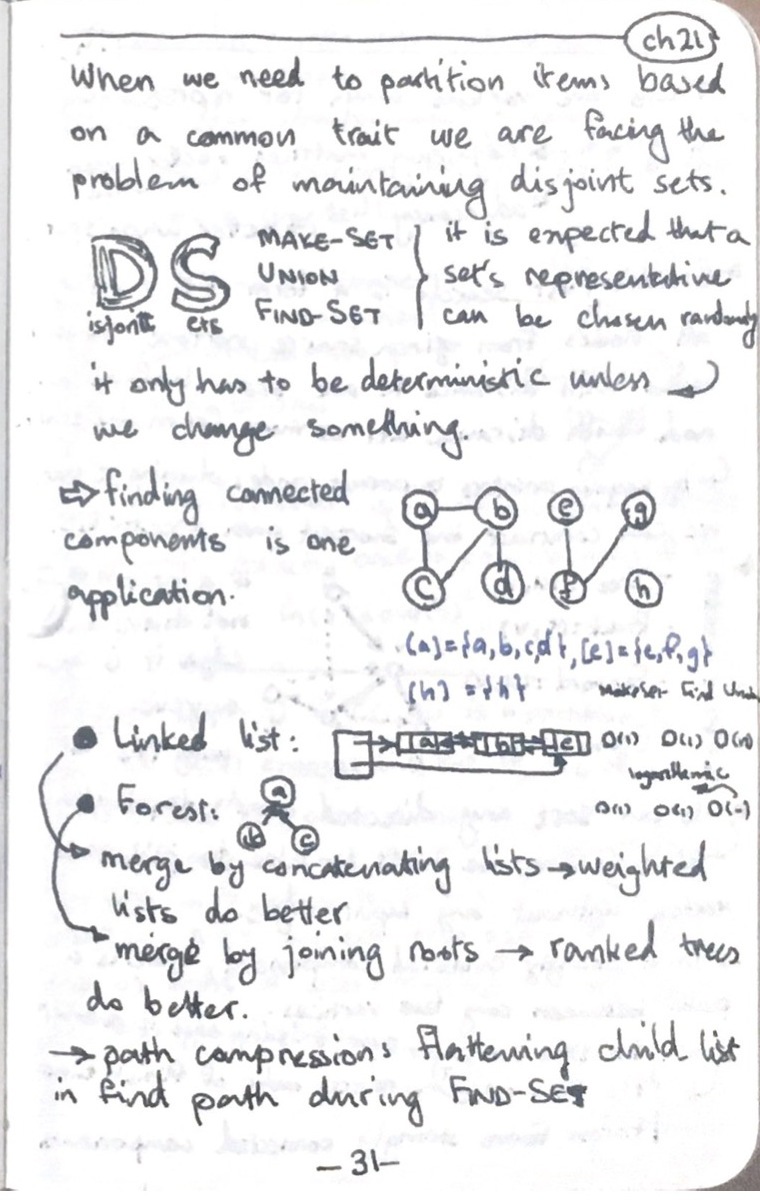 ch21
When we need to partition items based
on a common trait we are facing the
problem of mauntaining disjoint sets.
DS
isjoint ets
MAKE-SET
UNION
FIND-SET
it is expected that a
set's representative
can be chosen randomly
it only has to be deterministic unless
we change something
⇨ finding connected
components is one
application.
a b e g
c d f h
[a]={a,b,c,d}, [e]={e,f,g}
[h] = {h}
Makeset Find Union
• Linked list: a b c O(1) O(1) O(n)
logarithmic
• Forest: a b c O(1) O(1) O(~)
merge by concatenating lists → weighted
lists do better
merge by joining roots → ranked trees
do better.
→ path compression: flattening child list
in find path during FIND-SET
-31-